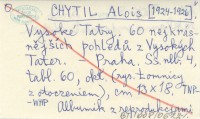 CHYTIL Alois [1924-1926]
Vysoké Tatry. 60 nejkrás-
nějších pohledů z Vysokých
Tater. - Praha. SS nlb. 4,
tabl. 60, okł. (rys. Łomnicy
z otoczeniem), cm 13x18 TNP-
-WHP Albumik z reprodukcjami